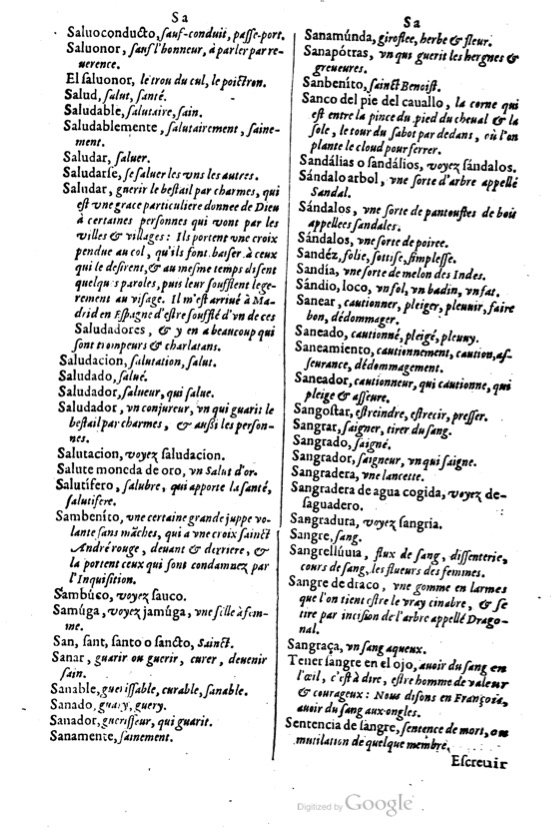 Sa
Saluoconducto, ſauf-conduit, paſſe-port.
Saluonor, ſauf l'honneur, à parler par re-
uerence.
El ſaluonor, le trou du cul, le poictron.
Salud, ſalut, ſanté.
Saludable, ſalutaire, ſain.
Saludablemente, ſalutairement, ſaine-
ment.
Saludar, ſaluer.
Saludarſe, ſe ſaluer les vns les autres.
Saludar, guerir le beſtail par charmes, qui
eſt vne grace particuliere donnee de Dieu
à certaines perſonnes qui vont par les
villes & villages : Ils portent vne croix
pendue au col, qu'ils font baiſer à ceux
qui le deſirent, & au meſme temps diſent
quelqu s paroles, puis leur ſoufflent lege-
rement au viſage. Il m'eſt arriué à Ma-
drid en Eſpagne d'eſtre ſoufflé d'vn de ces
Saludadores, & y en a beaucoup qui
ſont trompeurs & charlatans.
Saludacion, ſalutation, ſalut.
Saludado, ſalué.
Saludador, ſalueur, qui ſalue.
Saludador, vn conjureur, vn qui guarit le
beſtail par charmes, & auſſi les perſon-
nes.
Salutacion, voyez ſaludacion.
Salute moneda de oro, vn Salut d'or.
Salutífero, ſalubre, qui apporte la ſanté,
ſalutifere.
Sambeníto, vne certaine grande juppe vo-
lante ſans mãches, qui a vne croix ſainct
André rouge, deuant & derriere, &
la portent ceux qui ſont condamnez par
l'Inquiſition.
Sambúco, voyez ſauco.
Samúga, voyez jamúga, vne ſelle à fem-
me.
San, ſant, ſanto o ſancto, Sainct.
Sanar, guarir ou guerir, curer, deuenir
ſain.
Sanable, gueriſſable, curable, ſanable.
Sanado, guary, guery.
Sanador, gueriſſeur, qui guarit.
Sanamente, ſainement.
Sa
Sanamúnda, giroflee, herbe & fleur.
Sanapótras, vn qus guerit les hergnes &
greueures.
Sanbeníto, ſainct Benoiſt.
Sanco del pie del cauallo, la corne qui
eſt entre la pince du pied du cheual & la
ſole, le tour du ſabot par dedans, où l'on
plante le cloud pour ferrer.
Sandálias o ſandálios, voyez ſándalos.
Sándalo arbol, vne ſorte d'arbre appellé
Sandal.
Sándalos, vne ſorte de pantoufles de bois
appellees ſandales.
Sándalos, vne ſorte de poiree.
Sandéz, folie, ſottiſe, ſimpleſſe.
Sandía, vne ſorte de melon des Indes.
Sándio, loco, vn fol, vn badin, vn fat.
Sanear, cautionner, pleiger, pleuuir, faire
bon, dédommager.
Saneado, cautionné, pleigé, pleuuy.
Saneamiento, cautionnement, caution, aſ-
ſeurance, dédommagement.
Saneador, cautionneur, qui cautionne, qui
pleige & aſſeure.
Sangoſtar, eſtreindre, eſtrecir, preſſer.
Sangrar, ſaigner, tirer du ſang.
Sangrado, ſaigné.
Sangrador, ſaigneur, vn qui ſaigne.
Sangradera, vne lancette.
Sangradera de agua cogida, voyez de-
ſaguadero.
Sangradura, voyez ſangria.
Sangre, ſang.
Sangrellúuia, flux de ſang, diſſenterie,
cours de ſang, les flueurs des femmes.
Sangre de draco, vne gomme en larmes
que l'on tient eſtre le vray cinabre, & ſe
tire par inciſion de l'arbre appellé Drago-
nal.
Sangraça, vn ſang aqueux.
Tener ſangre en el ojo, auoir du ſang en
l'œil, c'eſt à dire, eſtre homme de valeur
& courageux : Nous diſons en François,
auoir du ſang aux ongles.
Sentencia de ſangre, ſentence de mort, ou
mutilation de quelque membre.
Eſcreuir
Digitized by Google